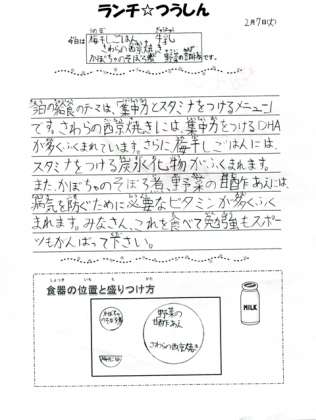 ランチ☆つうしん
2月7日(火)
今日は 梅干しごはん 牛乳
さわらの西京焼き
かぼちゃのそぼろ煮 野菜の甘酢あえ です。
今日の給食のテーマは、「集中力とスタミナをつけるメニュー」
です。さわらの西京焼きには、集中力をつけるDHA
が多くふくまれています。さらに、梅干しごはんには、
スタミナをつける炭水化物がふくまれます。
また、かぼちゃのそぼろ煮、野菜の甘酢あえには、
病気を防ぐために必要なビタミンが多くふく
まれます。みなさん、これを食べて勉強もスポー
ツもがんばって下さい。
食器の位置と盛りつけ方
かぼちゃのそぼろ煮
野菜の
甘酢あえ
さわらの西京焼き
梅干しごはん
MILK